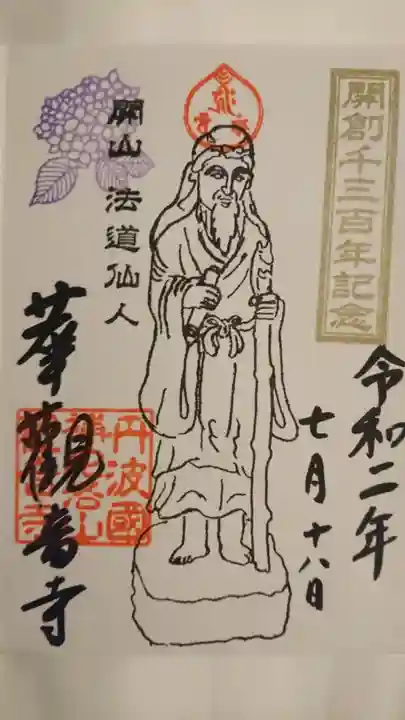 開創千三百年記念
令和二年
七月十八日
開山 法道仙人
華観音寺
丹波國